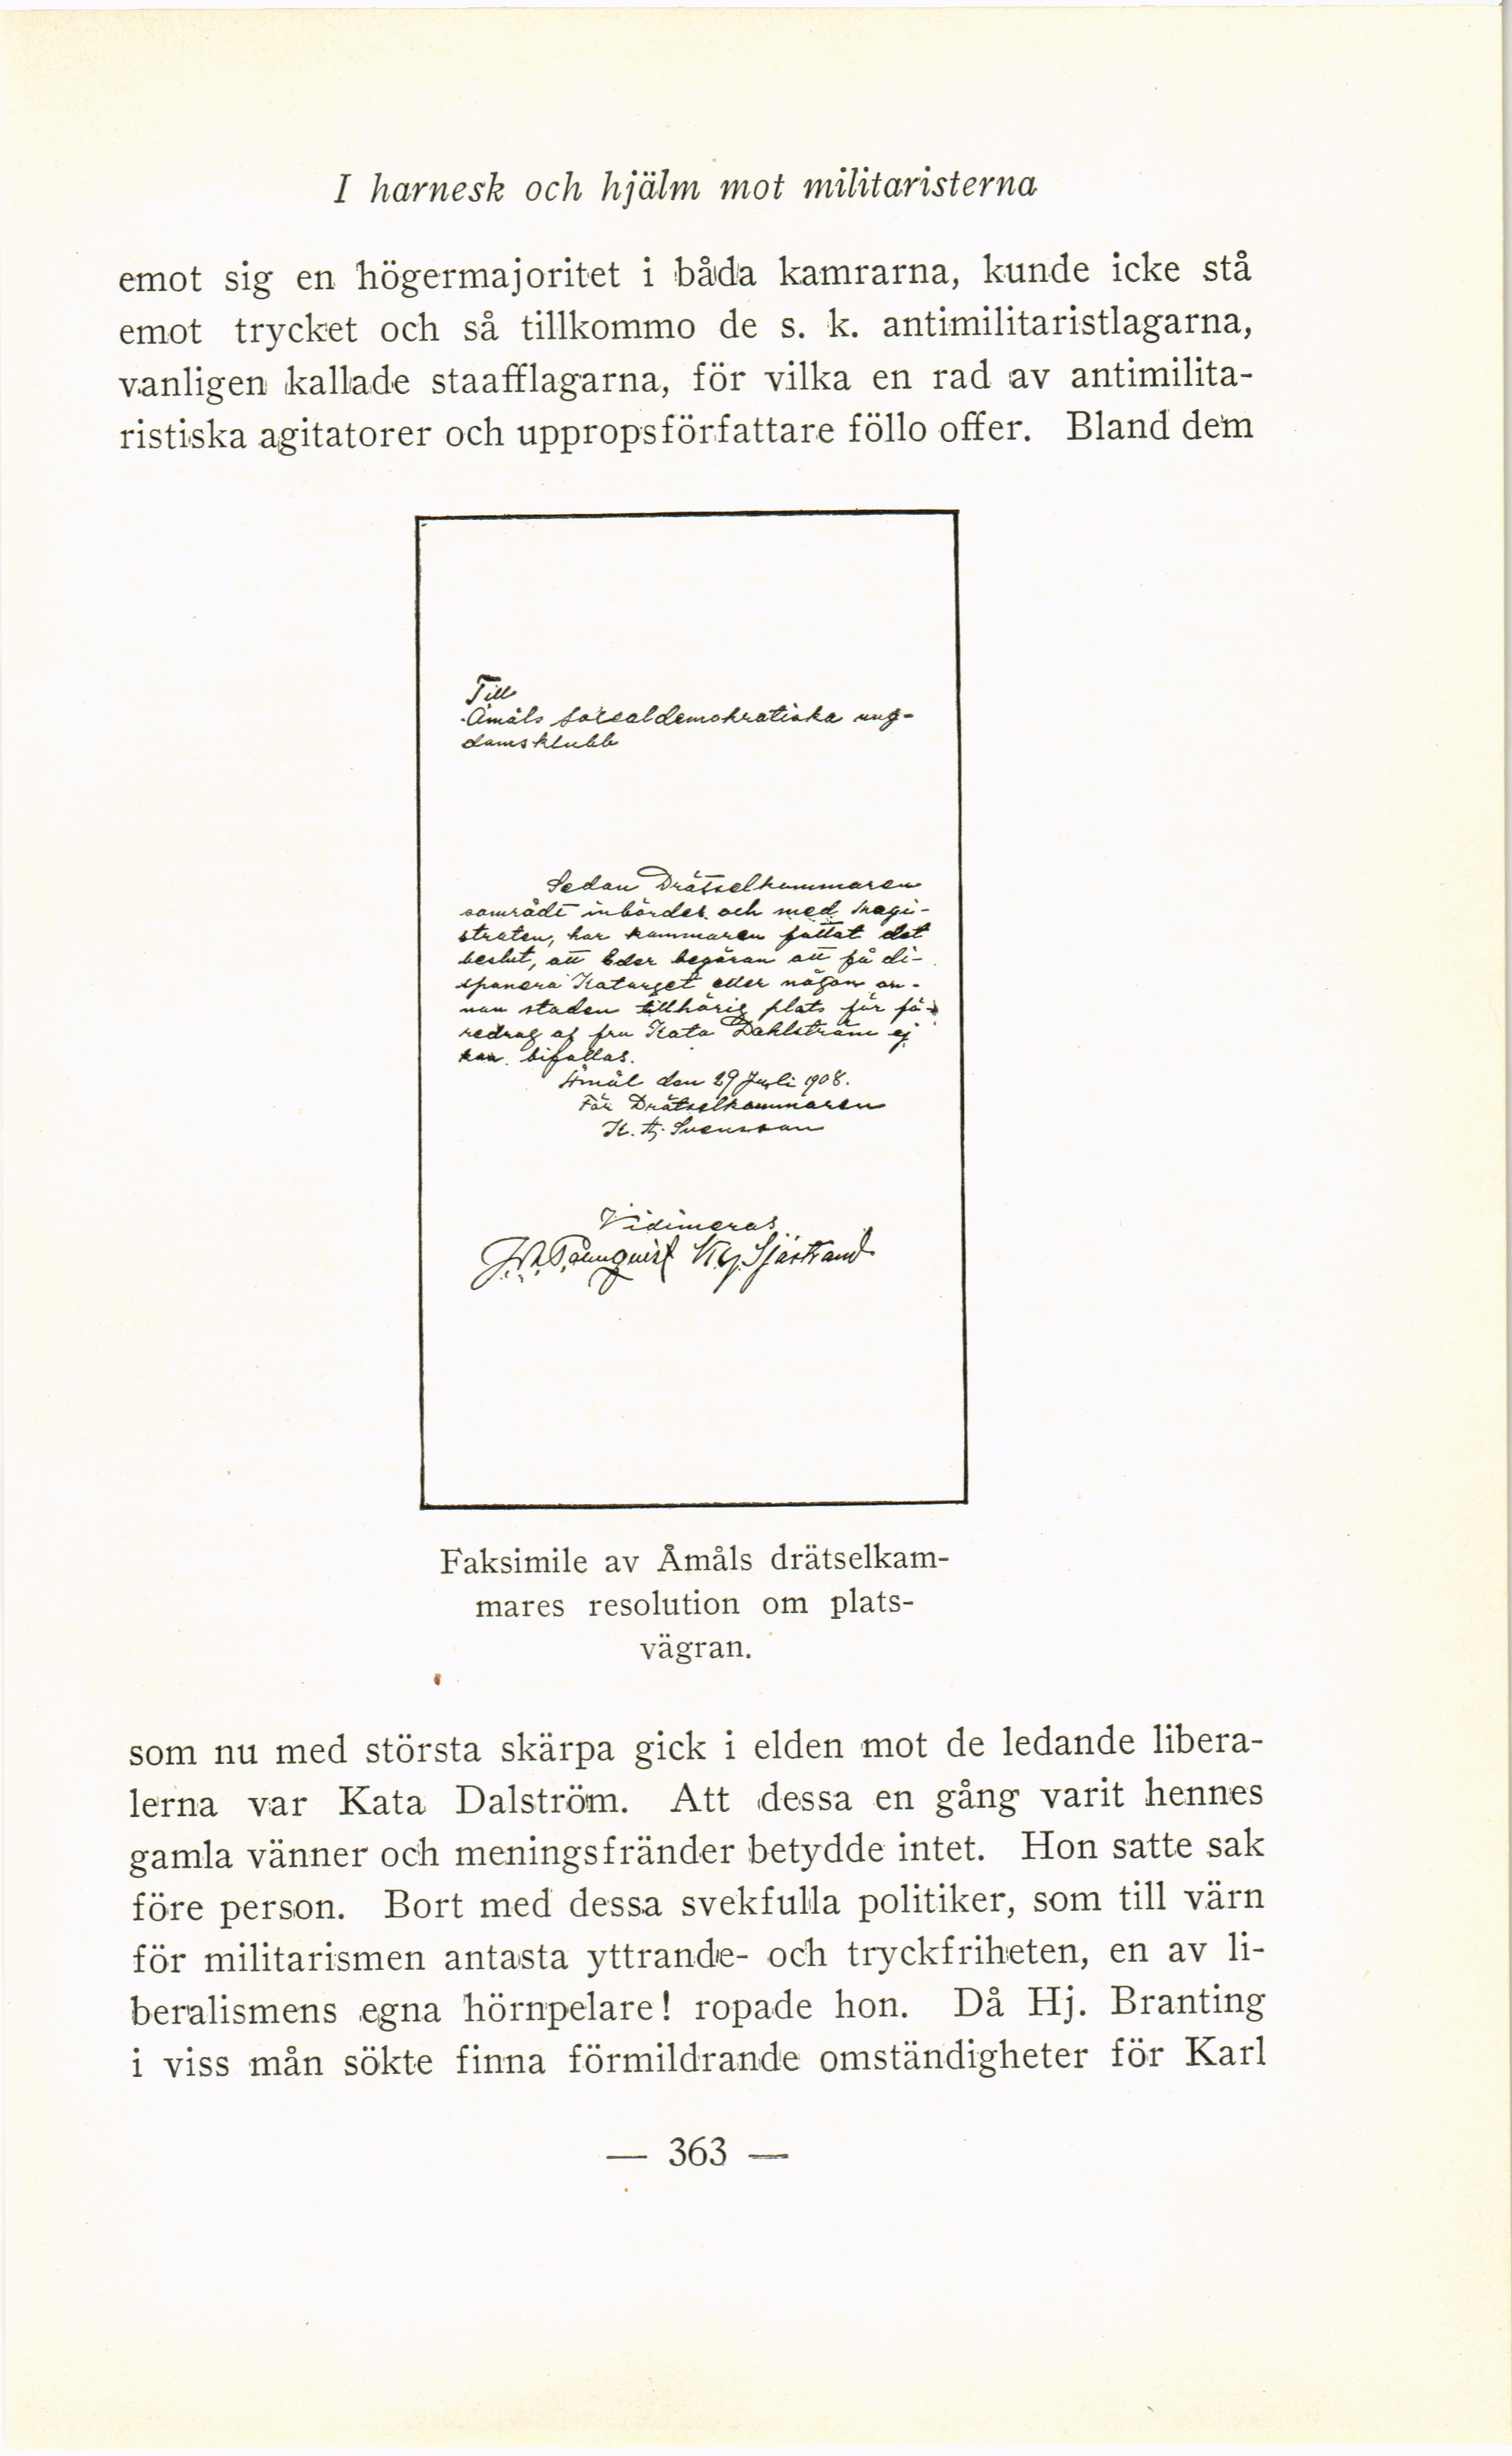 I harnesk och hjälm mot militaristerna
emot sig en högermajoritet i båda kamrarna, kunde icke stå
emot trycket och så tillkommo de s. k. antimilitaristlagarna,
vanligen kallade staafflagarna, för vilka en rad av antimilita-
ristiska agitatorer och uppropsförfattare föllo offer. Bland dem
Till
Åmåls socialdemokratiska ung-
domsklubb
Sedan Drätselkammaren
samrådt inbördes och med magi-
straten, har kammaren fattat det
beslut, att Eder begäran att få di-
sponera Hatorget eller någon an-
nan staden tillhörig plats för fö-
redrag af fru Kata Dahlström ej
kan bifallas.
Åmål den 29 Juli 1908.
För Drätselkammaren
Svensson
Vidimeras
Sjöstrand
Faksimile av Åmåls drätselkam-
mares resolution om plats-
vägran.
som nu med största skärpa gick i elden mot de ledande libera-
lerna var Kata Dalström. Att dessa en gång varit hennes
gamla vänner och meningsfränder betydde intet. Hon satte sak
före person. Bort med dessa svekfulla politiker, som till värn
för militarismen antasta yttrande- och tryckfriheten, en av li-
beralismens egna hörnpelare! ropade hon. Då Hj. Branting
i viss mån sökte finna förmildrande omständigheter för Karl
— 363 —